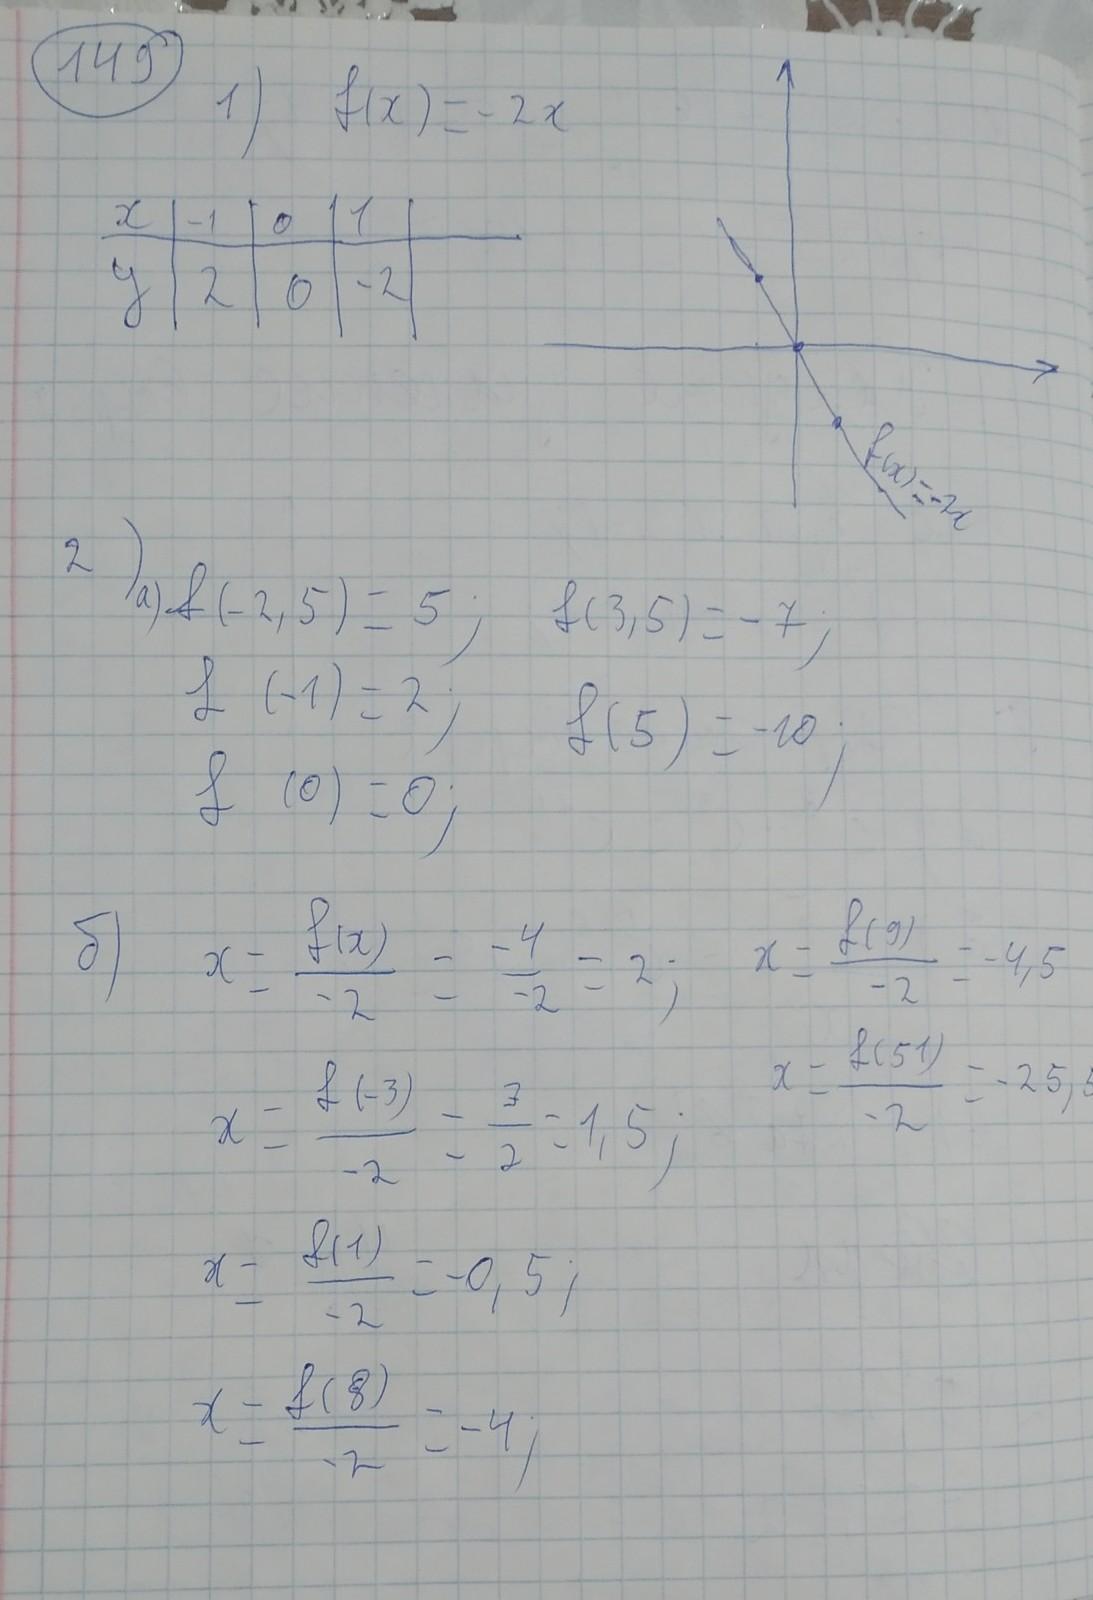 149
1) f(x) = -2x
x | -1 | 0 | 1 |
y | 2 | 0 | -2 |
f(x) = -2x
2) а) f(-2,5) = 5; f(3,5) = -7;
f(-1) = 2; f(5) = -10;
f(0) = 0;
б) x = f(x)/-2 = -4/-2 = 2; x = f(9)/-2 = -4,5
x = f(-3)/-2 = 3/2 = 1,5; x = f(51)/-2 = -25,5
x = f(1)/-2 = -0,5;
x = f(8)/-2 = -4;